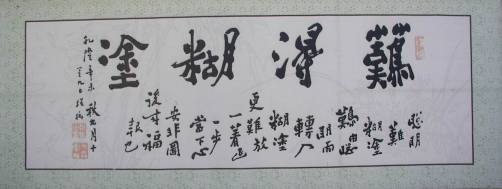 難得糊塗
聰明
難
糊塗
難由聰
明而
轉入
糊塗
更難放
一著退
一步
當下心
安非圖
後来福
報也
乾隆辛未秋九月十
九日板橋